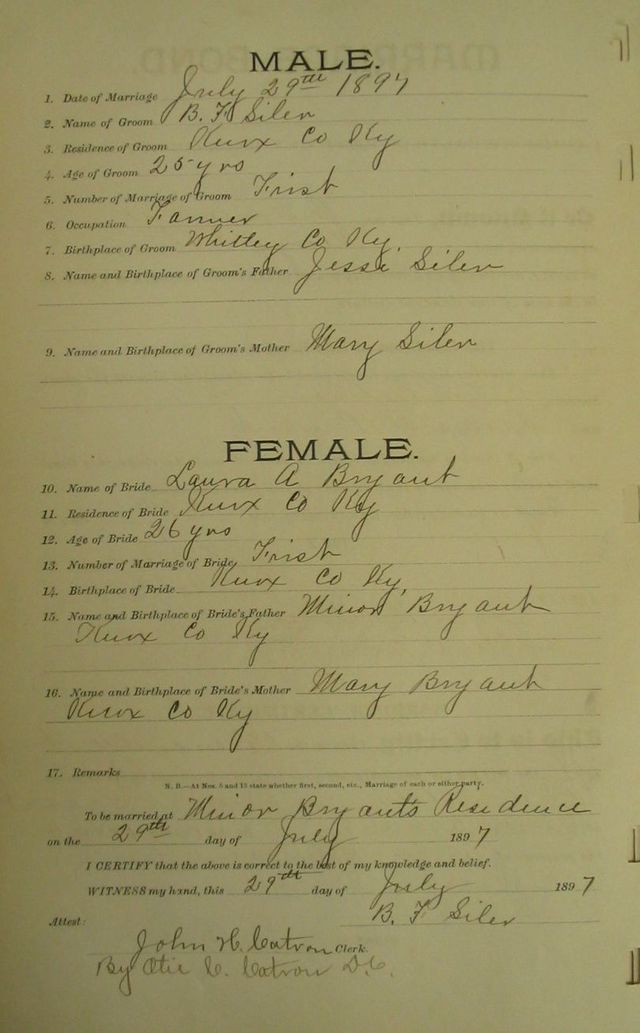 MALE.
1. Date of Marriage July 29th 1897
2. Name of Groom B. F. Siler
3. Residence of Groom Knox Co Ky
4. Age of Groom 25 yrs
5. Number of Marriage of Groom Frist
6. Occupation Farmer
7. Birthplace of Groom Whitley Co Ky.
8. Name and Birthplace of Groom's Father Jessi Siler
9. Name and Birthplace of Groom's Mother Mary Siler
FEMALE.
10. Name of Bride Laura A Bryant
11. Residence of Bride Knox Co Ky
12. Age of Bride 26 yrs
13. Number of Marriage of Bride Frist
14. Birthplace of Bride Knox Co Ky,
15. Name and Birthplace of Bride's Father Minor Bryant
Knox Co Ky
16. Name and Birthplace of Bride's Mother Mary Bryant
Knox Co Ky
17. Remarks
N. B.—At Nos. 5 and 13 state whether first, second, etc., Marriage of each or either party.
To be married at Minor Bryants Residence
on the 29th day of July 1897
I CERTIFY that the above is correct to the best of my knowledge and belief.
WITNESS my hand, this 29th day of July 1897
B. F Siler
Attest:
John H. Catron Clerk.
By Otie C. Catron D.C.